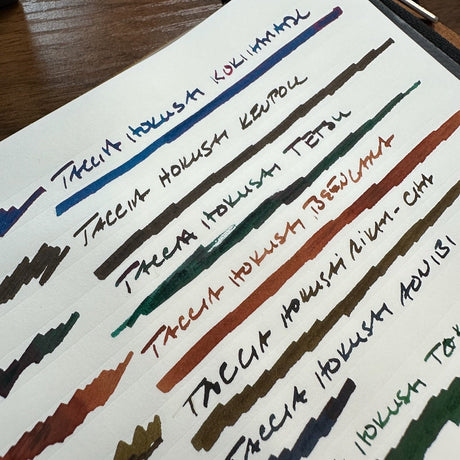 TACCIA HOKUSAI KOKIHANADA
TACCIA HOKUSAI KENPOU
TACCIA HOKUSAI TETSU
TACCIA HOKUSAI BEENGARA
TACCIA HOKUSAI RIKYU-CHA
TACCIA HOKUSAI AONIBI
HOKUSAI